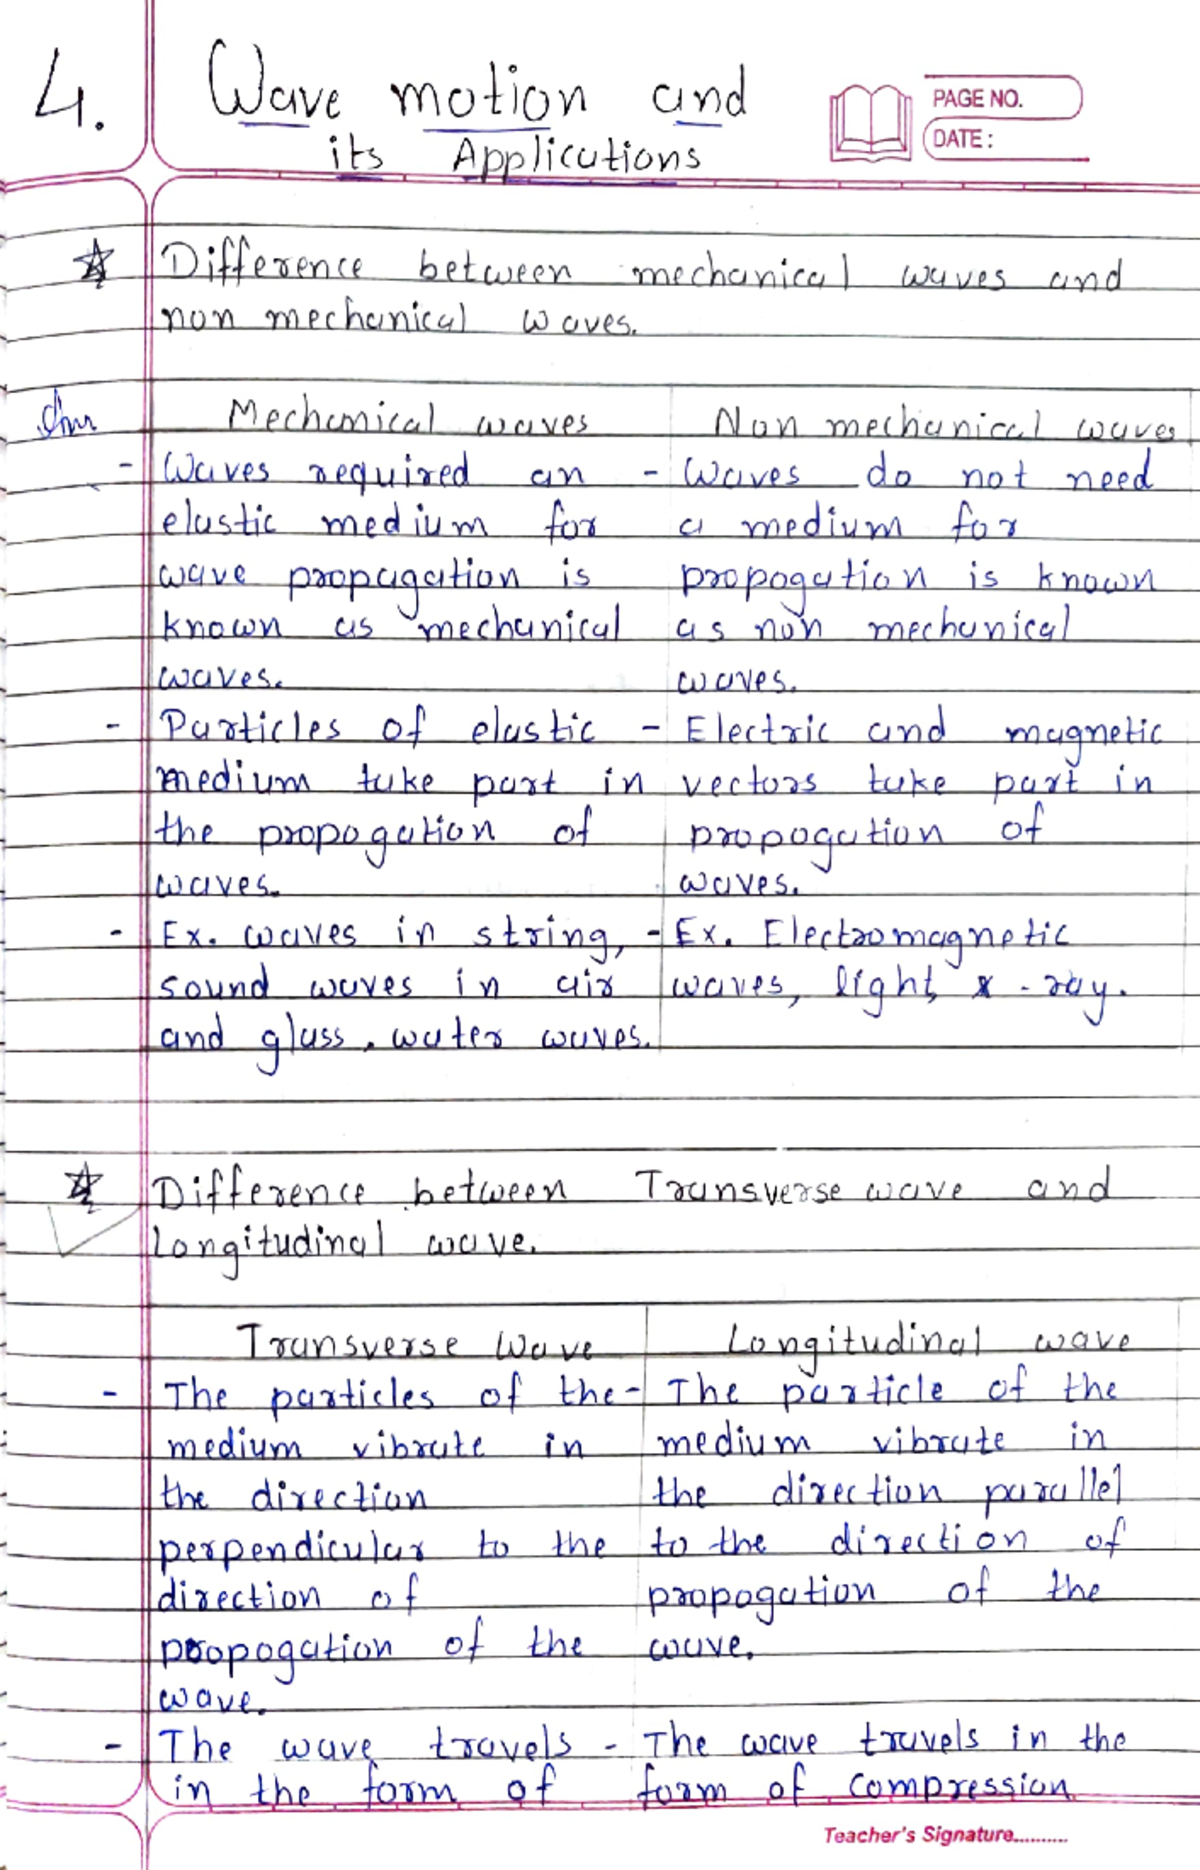 4. Wave motion and
its Applications
PAGE NO.
DATE:
Difference between mechanical waves and
non mechanical waves.
Ans
Mechanical waves
- Waves required an
elastic medium for
wave propagation is
known as mechanical
waves.
- Particles of elastic
medium take part in
the propogation of
waves.
- Ex. waves in string,
sound waves in air
and glass, water waves.
Non mechanical waves
- Waves do not need
a medium for
propogation is known
as non mechanical
waves.
- Electric and magnetic
vectors take part in
propogation of
waves.
- Ex. Electromagnetic
waves, light, x-ray.
Difference between Transverse wave and
longitudinal wave.
Transverse Wave
- The particles of the
medium vibrate in
the direction
perpendicular to the
direction of
propogation of the
wave.
- The wave travels
in the form of
Longitudinal wave
- The particle of the
medium vibrate in
the direction parallel
to the direction of
propogation of the
wave.
- The wave travels in the
form of compression
Teacher's Signature..........